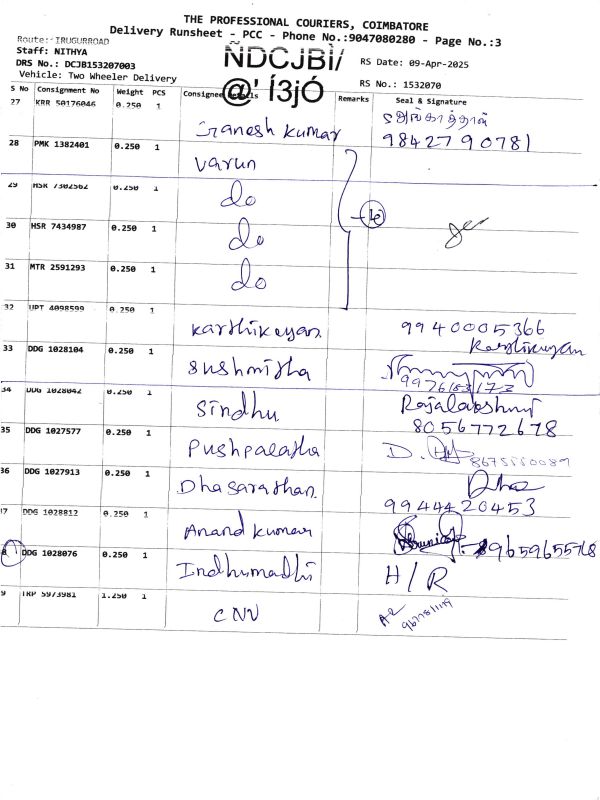 THE PROFESSIONAL COURIERS, COIMBATORE
Delivery Runsheet - PCC - Phone No.:9047080280 - Page No.:3
Route: IRUGURROAD
Staff: NITHYA
DRS No.: DCJB153207003
Vehicle: Two Wheeler Delivery
ÑDCJBÌ/
@' Í3jÓ
RS Date: 09-Apr-2025
RS No.: 1532070
S No Consignment No Weight PCS Consignee Details Remarks Seal & Signature
27 KRR 50176046 0.250 1 Ganesh kumar 9842790781
28 PMK 1382401 0.250 1 Varun
29 HSR 7302562 0.250 1 do
30 HSR 7434987 0.250 1 do
31 MTR 2591293 0.250 1 do
32 UPT 4098599 0.250 1 Karthikeyan 9940005366
Karthikeyan
33 DDG 1028104 0.250 1 Sushmitha
34 DDG 1028042 0.250 1 Sindhu Rajalakshmi
8056772678
35 DDG 1027577 0.250 1 Pushpalatha D.
36 DDG 1027913 0.250 1 Dhasarathan
9944420453
37 DDG 1028812 0.250 1 Anand kumar 9659655768
38 DDG 1028076 0.250 1 Indhumadhi H/R
39 TRP 5973981 1.250 1 CNV